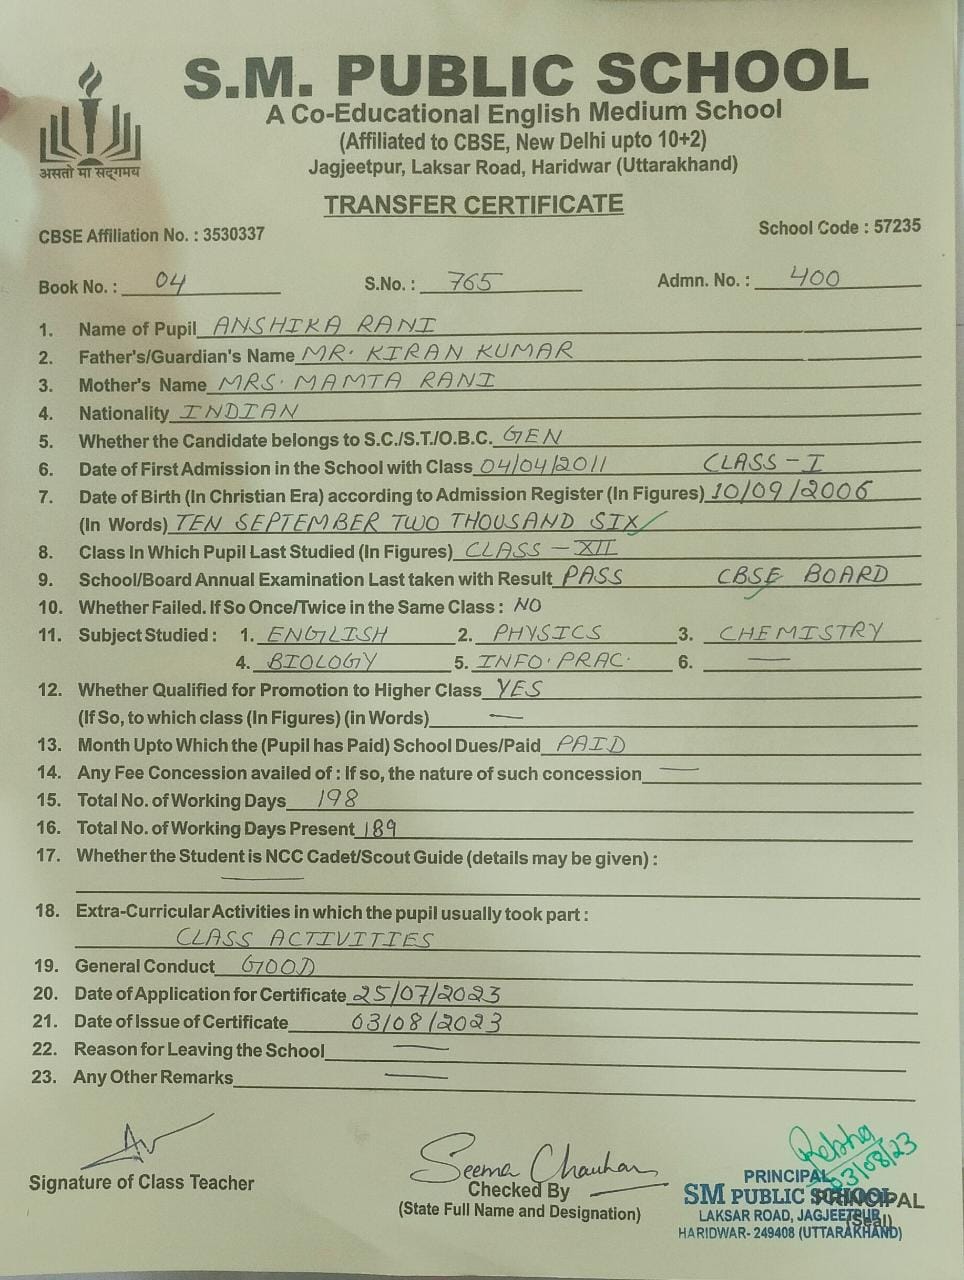 S.M. PUBLIC SCHOOL
A Co-Educational English Medium School
(Affiliated to CBSE, New Delhi upto 10+2)
Jagjeetpur, Laksar Road, Haridwar (Uttarakhand)
असतो मा सद्गमय
TRANSFER CERTIFICATE
CBSE Affiliation No. : 3530337 School Code : 57235
Book No. : 04 S.No. : 765 Admn. No. : 400
1. Name of Pupil ANSHIKA RANI
2. Father's/Guardian's Name MR. KIRAN KUMAR
3. Mother's Name MRS. MAMTA RANI
4. Nationality INDIAN
5. Whether the Candidate belongs to S.C./S.T./O.B.C. GEN
6. Date of First Admission in the School with Class 04/04/2011 CLASS - I
7. Date of Birth (In Christian Era) according to Admission Register (In Figures) 10/09/2006
(In Words) TEN SEPTEMBER TWO THOUSAND SIX
8. Class In Which Pupil Last Studied (In Figures) CLASS - XII
9. School/Board Annual Examination Last taken with Result PASS CBSE BOARD
10. Whether Failed. If So Once/Twice in the Same Class : NO
11. Subject Studied : 1. ENGLISH 2. PHYSICS 3. CHEMISTRY
4. BIOLOGY 5. INFO. PRAC. 6. —
12. Whether Qualified for Promotion to Higher Class YES
(If So, to which class (In Figures) (in Words) —
13. Month Upto Which the (Pupil has Paid) School Dues/Paid PAID
14. Any Fee Concession availed of : If so, the nature of such concession —
15. Total No. of Working Days 198
16. Total No. of Working Days Present 189
17. Whether the Student is NCC Cadet/Scout Guide (details may be given) :
—
18. Extra-Curricular Activities in which the pupil usually took part :
CLASS ACTIVITIES
19. General Conduct GOOD
20. Date of Application for Certificate 25/07/2023
21. Date of Issue of Certificate 03/08/2023
22. Reason for Leaving the School —
23. Any Other Remarks —
Seema Chauhan
03/08/23
Signature of Class Teacher
Checked By
(State Full Name and Designation)
PRINCIPAL
SM PUBLIC SCHOOL
LAKSAR ROAD, JAGJEETPUR
HARIDWAR- 249408 (UTTARAKHAND)
PRINCIPAL
(Seal)